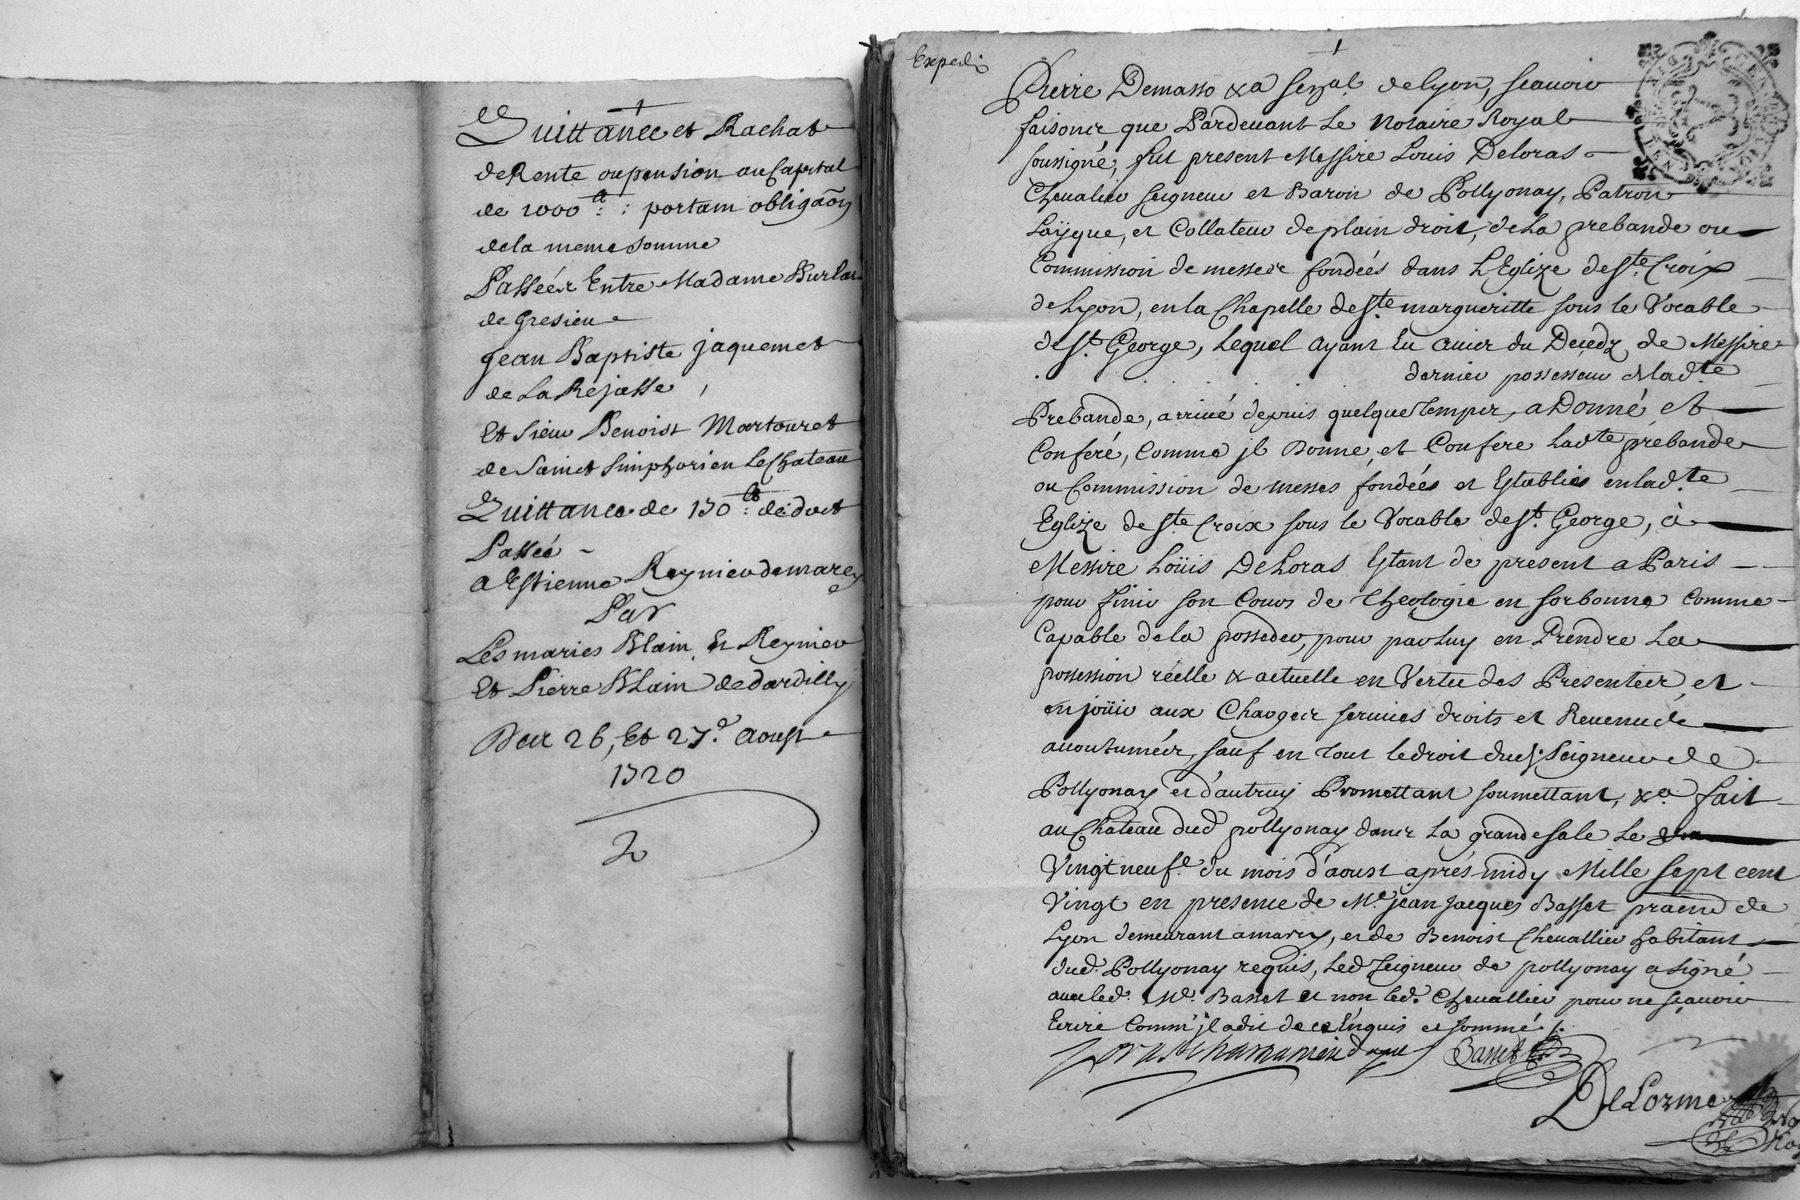 Quittance et Rachat
de Rente ou pension au Capital
de 1000 tt : portam obligaõn
de la meme somme
Passéez Entre Madame Burlat
de Gresieu
Jean Baptiste Jaquemet
de La Rejasse,
Et Sieur Benoist Martouret
de Sainct Simphorien Le Chateau
Quittance de 150 tt: de doct
Passée
a Estienne Reynieu de marcy
Par
Les maries Blain et Reynieu
Et Pierre Blain de dardilly
Des 26, Et 27e. Aoust
1720
Expedi
Pierre Demasso &a Seral de Lyon, scauoir
faisons que Pardeuant Le Notaire Royal
soussigné, fut present Messire Louis Deloras
Cheualier Seigneur et Baron de Pollyonay, Patron
Layque, et Collateur de plain droit, de La prebande ou
Commission de messes fondées dans L'Eglize de Ste. Croix
de Lyon, en la Chapelle de Ste margueritte sous le Vocable
de St. George, Lequel ayant Eu auis du Decedz de Messire
. . . . dernier possesseur de lad.te
Prebande, arriué depuis quelque temps, a Donné et
Conferé, comme jl Donne, et Confere Ladte prébande
ou Commission de messes fondées et Establies en lad.te
Eglize de Ste Croix sous le Vocable de St. George, à
Messire Loüis DeLoras Estant de present a Paris
pour finir son Cours de theologie en sorbonne comme
Capable de la posseder, pour par luy en Prendre La
possession réelle & actuelle en Vertu des Presentes, et
en joüir aux Charges seruices droits et Reuenus
accoutumées, sauf en tout le droit dud. Seigneur de
Pollyonay et d'autruy Promettant soumettant, &a. fait
au Chateau dud pollyonay dans La grande sale Le
Vingt neuf.e du mois d'aoust aprés midy Mille sept cent
Vingt en presence de Me. jean jacques Basset praend de
Lyon demeurant a marcy, et de Benoist Cheuallier habitant
dud. Pollyonay requis, Led Seigneur de pollyonay a signé
auec led. Me. Basset et non led. Cheuallier pour ne scauoir
Ecrire Comm' jl a dit de ce Enquis et sommé /.
Basset
DeLorme